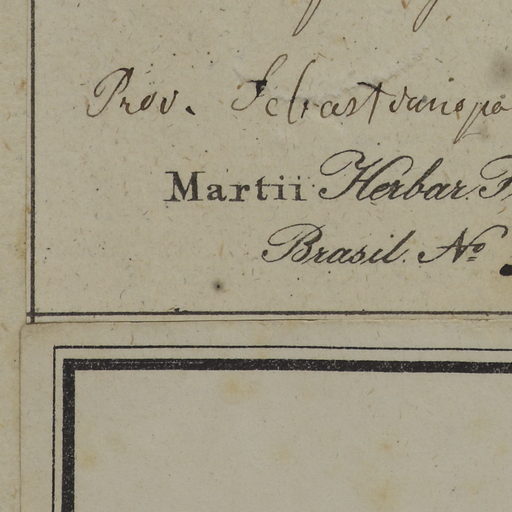 Prov. Sebastianopo
Martii Herbar. F
Brasil. No